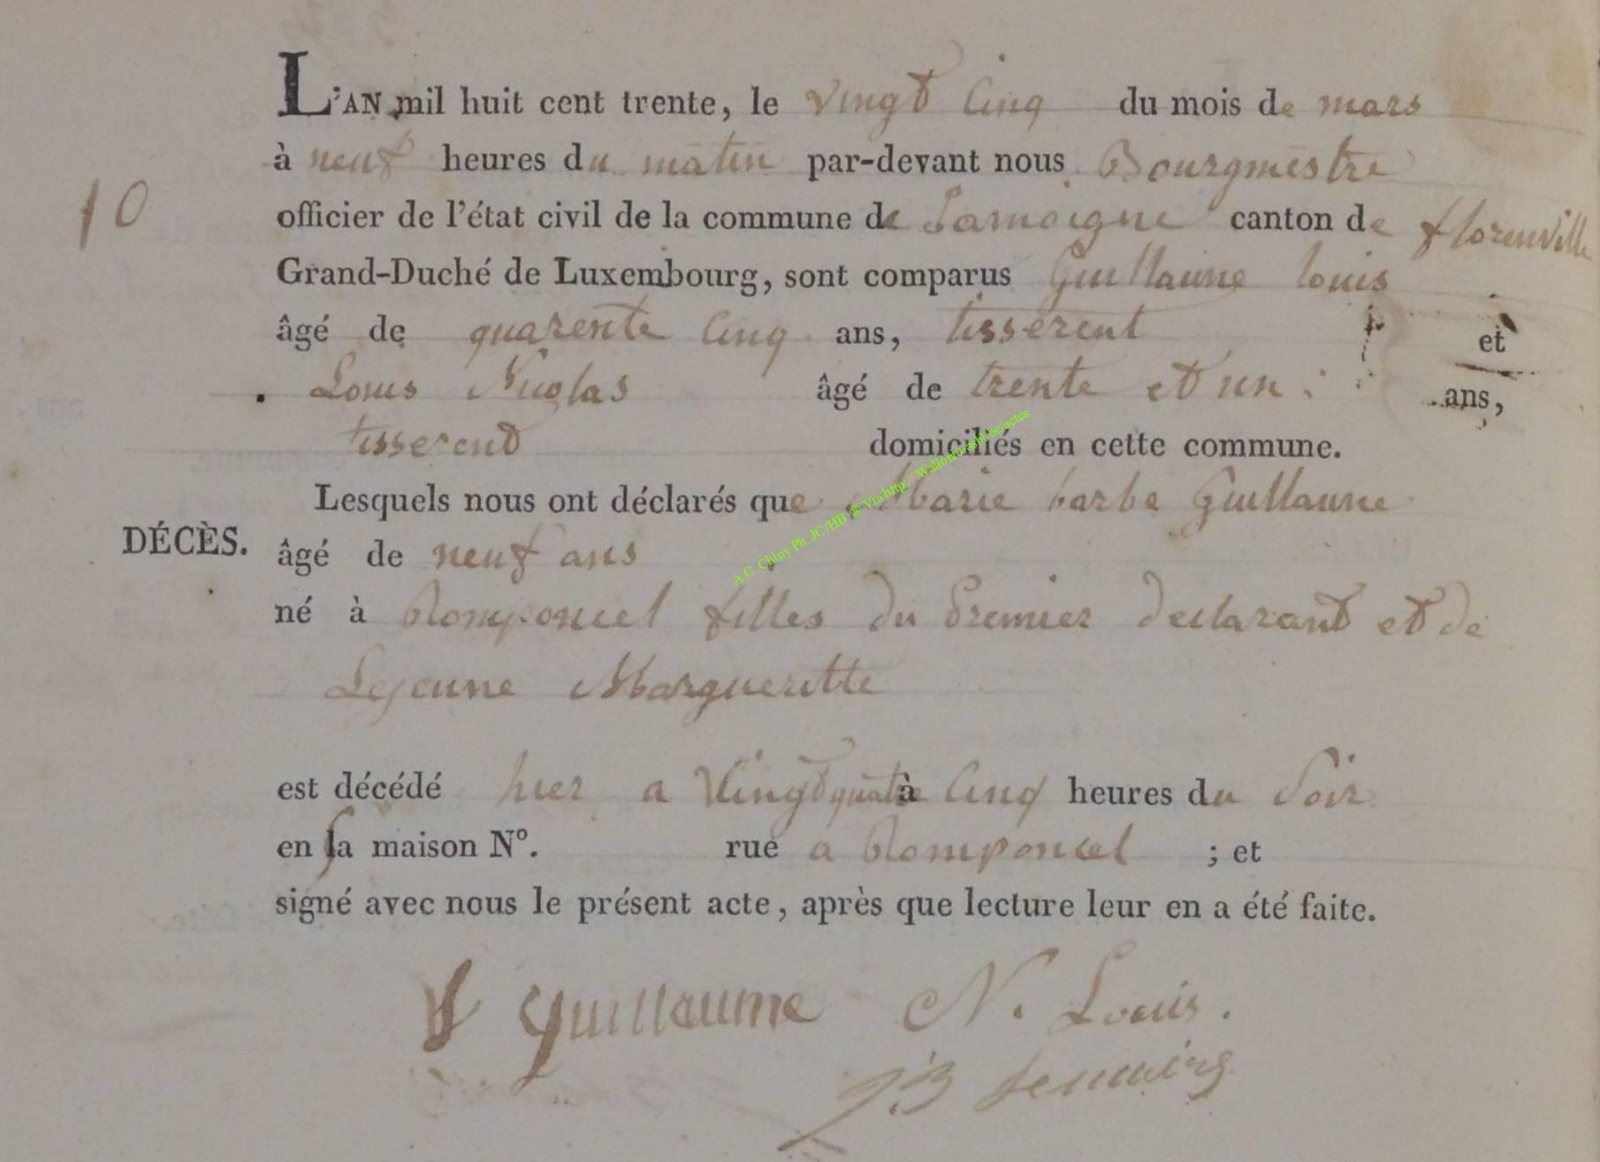 L'AN mil huit cent trente, le vingt cinq du mois de mars
à neuf heures du matin par-devant nous Bourgmestre
10
officier de l'état civil de la commune de Jamoigne canton de florenville
Grand-Duché de Luxembourg, sont comparus Guillaume louis
âgé de quarente cinq ans, tisserent et
Louis Nicolas âgé de trente et un ans,
tisserend domiciliés en cette commune.
Lesquels nous ont déclarés que Marie barbe Guillaume
DÉCÈS.
âgé de neuf ans
né à Romponcel filles du Premier declarant et de
Lejeune Margueritte
est décédé hier a Vingt quatre à Cinq heures du Soir
en sa maison N°. rue a Romponcel ; et
signé avec nous le présent acte, après que lecture leur en a été faite.
L Guillaume N. Louis.
J.B
A.C. Chiny Ph. JC/HB @ Via http://